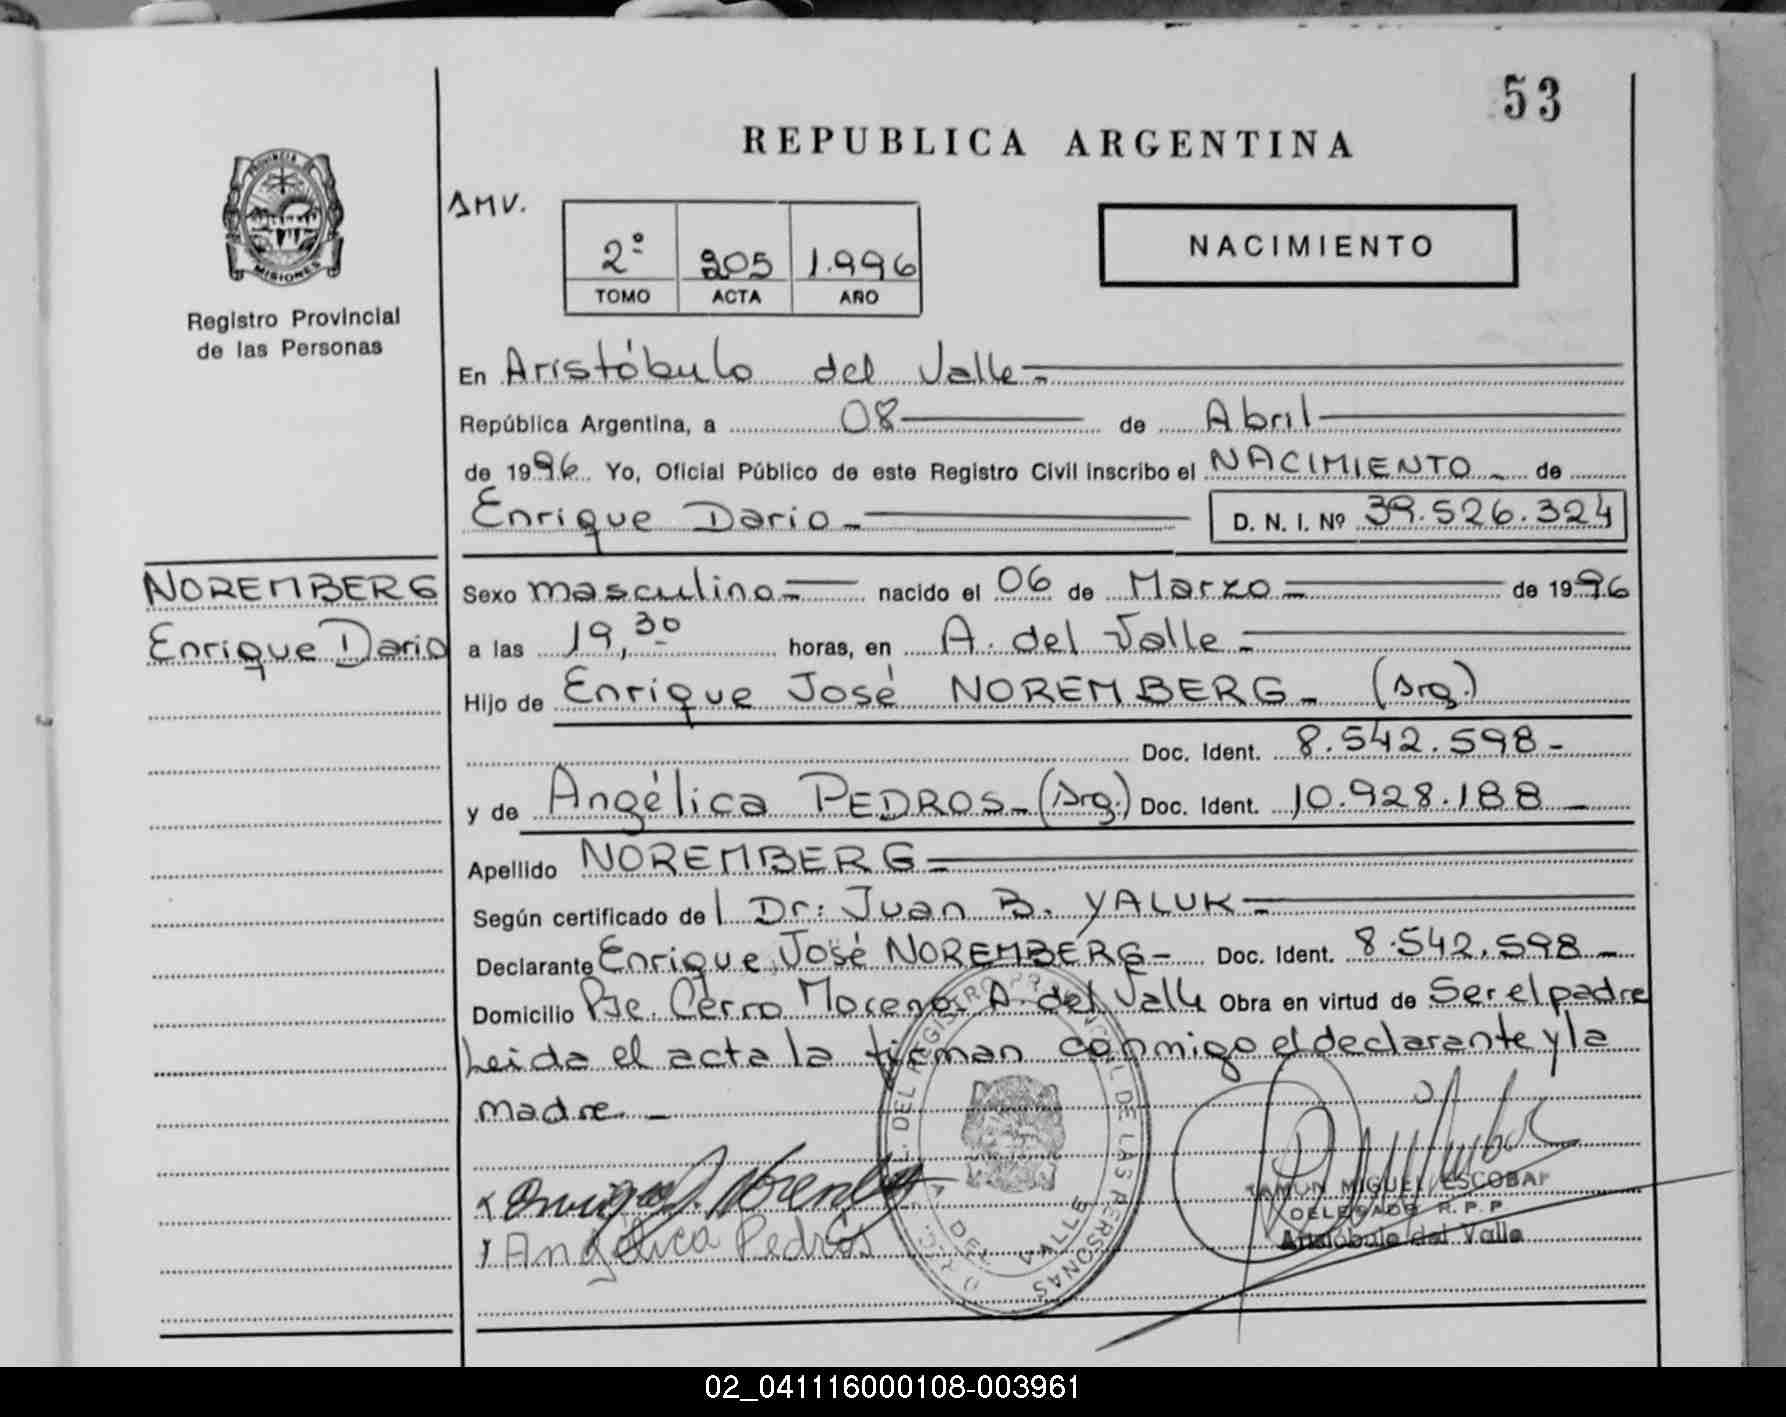 53
REPUBLICA ARGENTINA
PROVINCIA DE
MISIONES
Registro Provincial
de las Personas
AMV.
2º 205 1.996
TOMO ACTA AÑO
NACIMIENTO
En Aristóbulo del Valle-
República Argentina, a 08 de Abril
de 1996 Yo, Oficial Público de este Registro Civil inscribo el NACIMIENTO - de
Enrique Dario - D. N. I. Nº 39.526.324
NOREMBERG
Enrique Dario
Sexo masculino- nacido el 06 de Marzo - de 1996
a las 19,30 horas, en A. del Valle -
Hijo de Enrique José NOREMBERG - (Arg.)
Doc. Ident. 8.542.598 -
y de Angélica PEDROS - (Arg.) Doc. Ident. 10.928.188 -
Apellido NOREMBERG -
Según certificado del Dr: Juan B. YALUK -
Declarante Enrique José NOREMBERG - Doc. Ident. 8.542.598 -
Domicilio Pje. Cerro Moreno A. del Valle Obra en virtud de Ser el padre
Leida el acta la firman conmigo el declarante y la
madre. -
Angélica Pedrós
DEL REGISTRO PROVINCIAL DE LAS PERSONAS
DEL VALLE
RAMON MIGUEL ESCOBAR
DELEGADO R. P. P
Aristóbulo del Valle
02_041116000108-003961